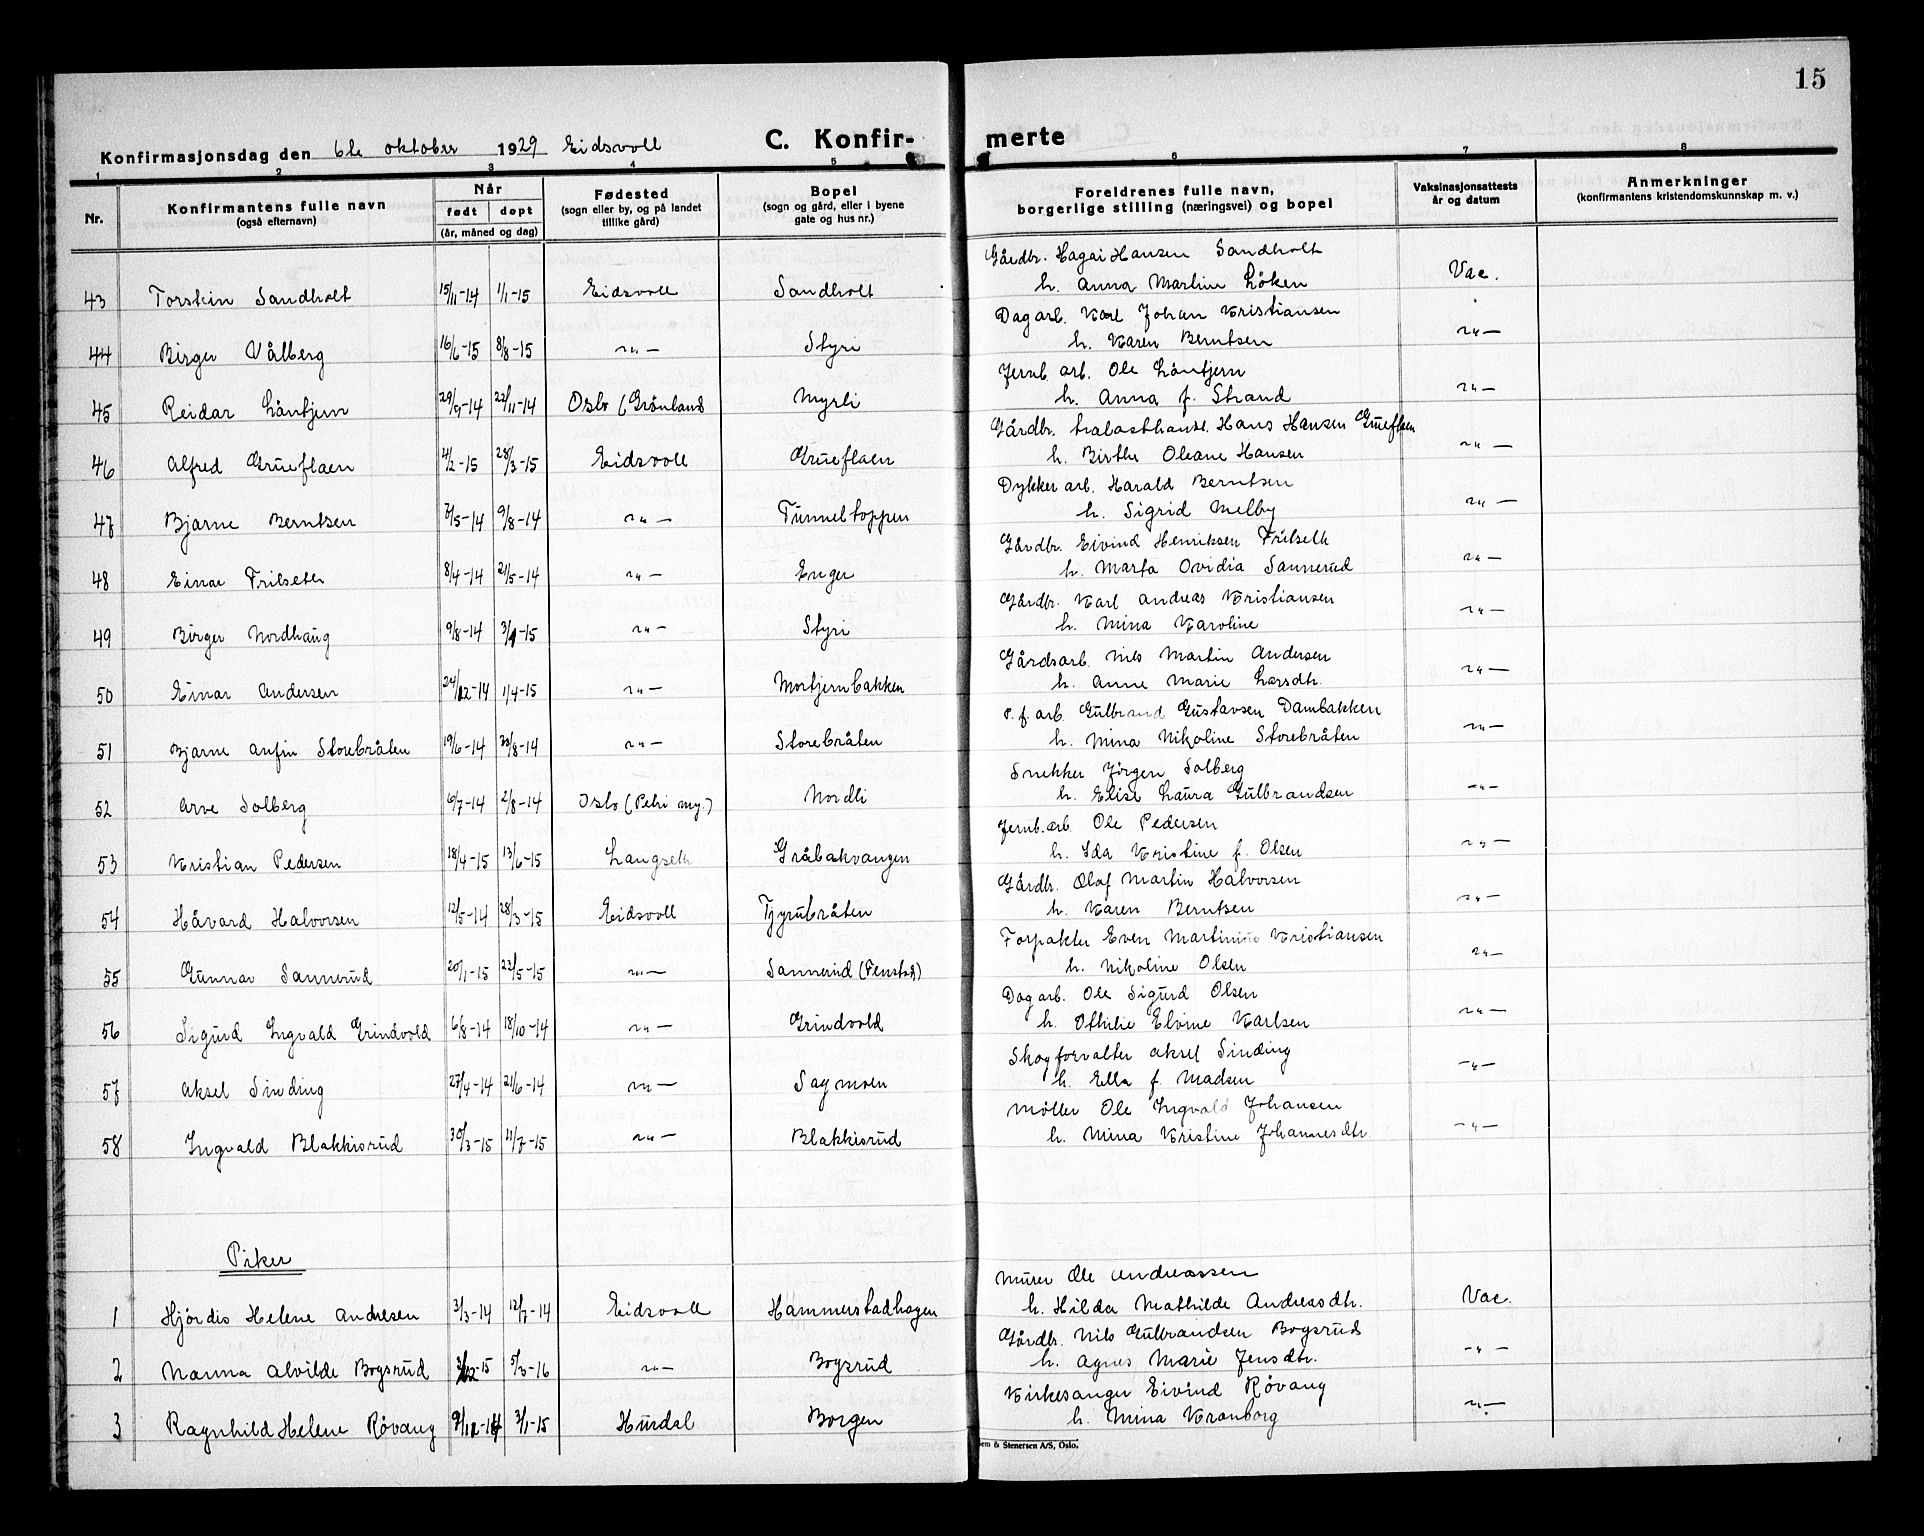 15
Konfirmasjonsdag den 6te oktober 1929 Eidsvoll C. Konfir- merte
1 2 3 4 5 6 7 8
Nr. Konfirmantens fulle navn (også efternavn) Når født døpt (år, måned og dag) Fødested (sogn eller by, og på landet tillike gård) Bopel (sogn og gård, eller i byene gate og hus nr.) Foreldrenes fulle navn, borgerlige stilling (næringsvei) og bopel Vaksinasjonsattests år og datum Anmerkninger (konfirmantens kristendomskunnskap m. v.)
Gårdbr. Hagai Hansen Sandholt
43 Torstein Sandholt 15/11-14 1/1-15 Eidsvoll Sandholt h. Anna Martine Løken Vac.
Dagarb. Karl Johan Kristiansen
44 Birger Vålberg 16/6-15 8/8-15 -"- Styri h. Karen Berntsen -"-
Jernb. arb. Ole Låntjern
45 Reidar Låntjern 29/9-14 22/11-14 Oslo (Grønland Myrli h. Anna f. Strand -"-
Gårdbr. trelasthandl. Hans Hansen Grueflaen
46 Alfred Grueflaen 4/2-15 28/3-15 Eidsvoll Grueflaen h. Birthe Oleane Hansen -"-
Dykker arb. Harald Berntsen
47 Bjarne Berntsen 7/5-14 9/8-14 -"- Tunneltoppen h. Sigrid Melby -"-
Gårdbr. Eivind Henriksen Frilseth
48 Einar Frilseth 8/4-14 21/5-14 -"- Enger h. Marta Ovidia Sannerud -"-
Gårdbr. Karl Andreas Kristiansen
49 Birger Nordhaug 9/8-14 3/1-15 -"- Styri h. Mina Karoline -"-
Gårdsarb. Nils Martin Andersen
50 Einar Andersen 24/12-14 1/4-15 -"- Mortjernbakken h. Anne Marie Larsdtr. -"-
P.f. arb. Gulbrand Gustavsen Dambakken
51 Bjarne Anfin Storebråten 19/6-14 23/8-14 -"- Storebråten h. Mina Nikoline Storebråten -"-
Snekker Jørgen Solberg
52 Arve Solberg 6/7-14 2/8-14 Oslo (Petri my.) Nordli h. Elise Laura Gulbrandsen -"-
Jernb.arb. Ole Pedersen
53 Kristian Pedersen 18/4-15 13/6-15 Langseth Gråbakvangen h. Ida Kristine f. Olsen -"-
Gårdbr. Olaf Martin Halvorsen
54 Håvard Halvorsen 12/5-14 28/3-15 Eidsvoll Tyrubråten h. Karen Berntsen -"-
Forpakter Even Martinius Kristiansen
55 Gunnar Sannerud 20/1-15 23/5-15 -"- Sannerud (Fenstad) h. Nikoline Olsen -"-
Dagarb. Ole Sigurd Olsen
56 Sigurd Ingvald Grindvold 6/8-14 18/10-14 -"- Grindvold h. Othilie Elvine Karlsen -"-
Skogforvalter Aksel Sinding
57 Aksel Sinding 27/4-14 21/6-14 -"- Sagmoen h. Ella f. Madsen -"-
Møller Ole Ingvald Johansen
58 Ingvald Blakkisrud 30/3-15 11/7-15 -"- Blakkisrud h. Mina Kristine Johannesdtr. -"-
Piker
Murer Ole Andreassen
1 Hjørdis Helene Andresen 3/3-14 12/7-14 Eidsvoll Hammerstadhagen h. Hilda Mathilde Andreasdtr. Vac.
Gårdbr. Nils Gulbrandsen Bogsrud
2 Nanna Alvilde Bogsrud 3/12-15 5/3-16 -"- Bogsrud h. Agnes Marie Jensdtr. -"-
Kirkesanger Eivind Røvang
3 Ragnhild Helene Røvang 9/12-14 3/1-15 Hurdal Borgen h. Mina Kronborg -"-
em & Stenersen A/S, Oslo.